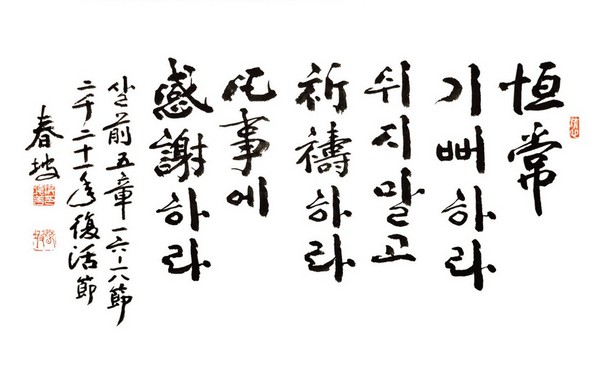 恒常
기뻐하라
쉬지말고
祈禱하라
凡事에
感謝하라
살前五章一六-一八節
二千二十一年復活節
春坡